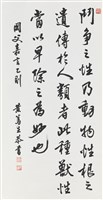 鬥爭之性乃動物性根之
遺傳於人類者此種獸性
當以早除之為妙也
國父嘉言乙則 黃篤生恭書